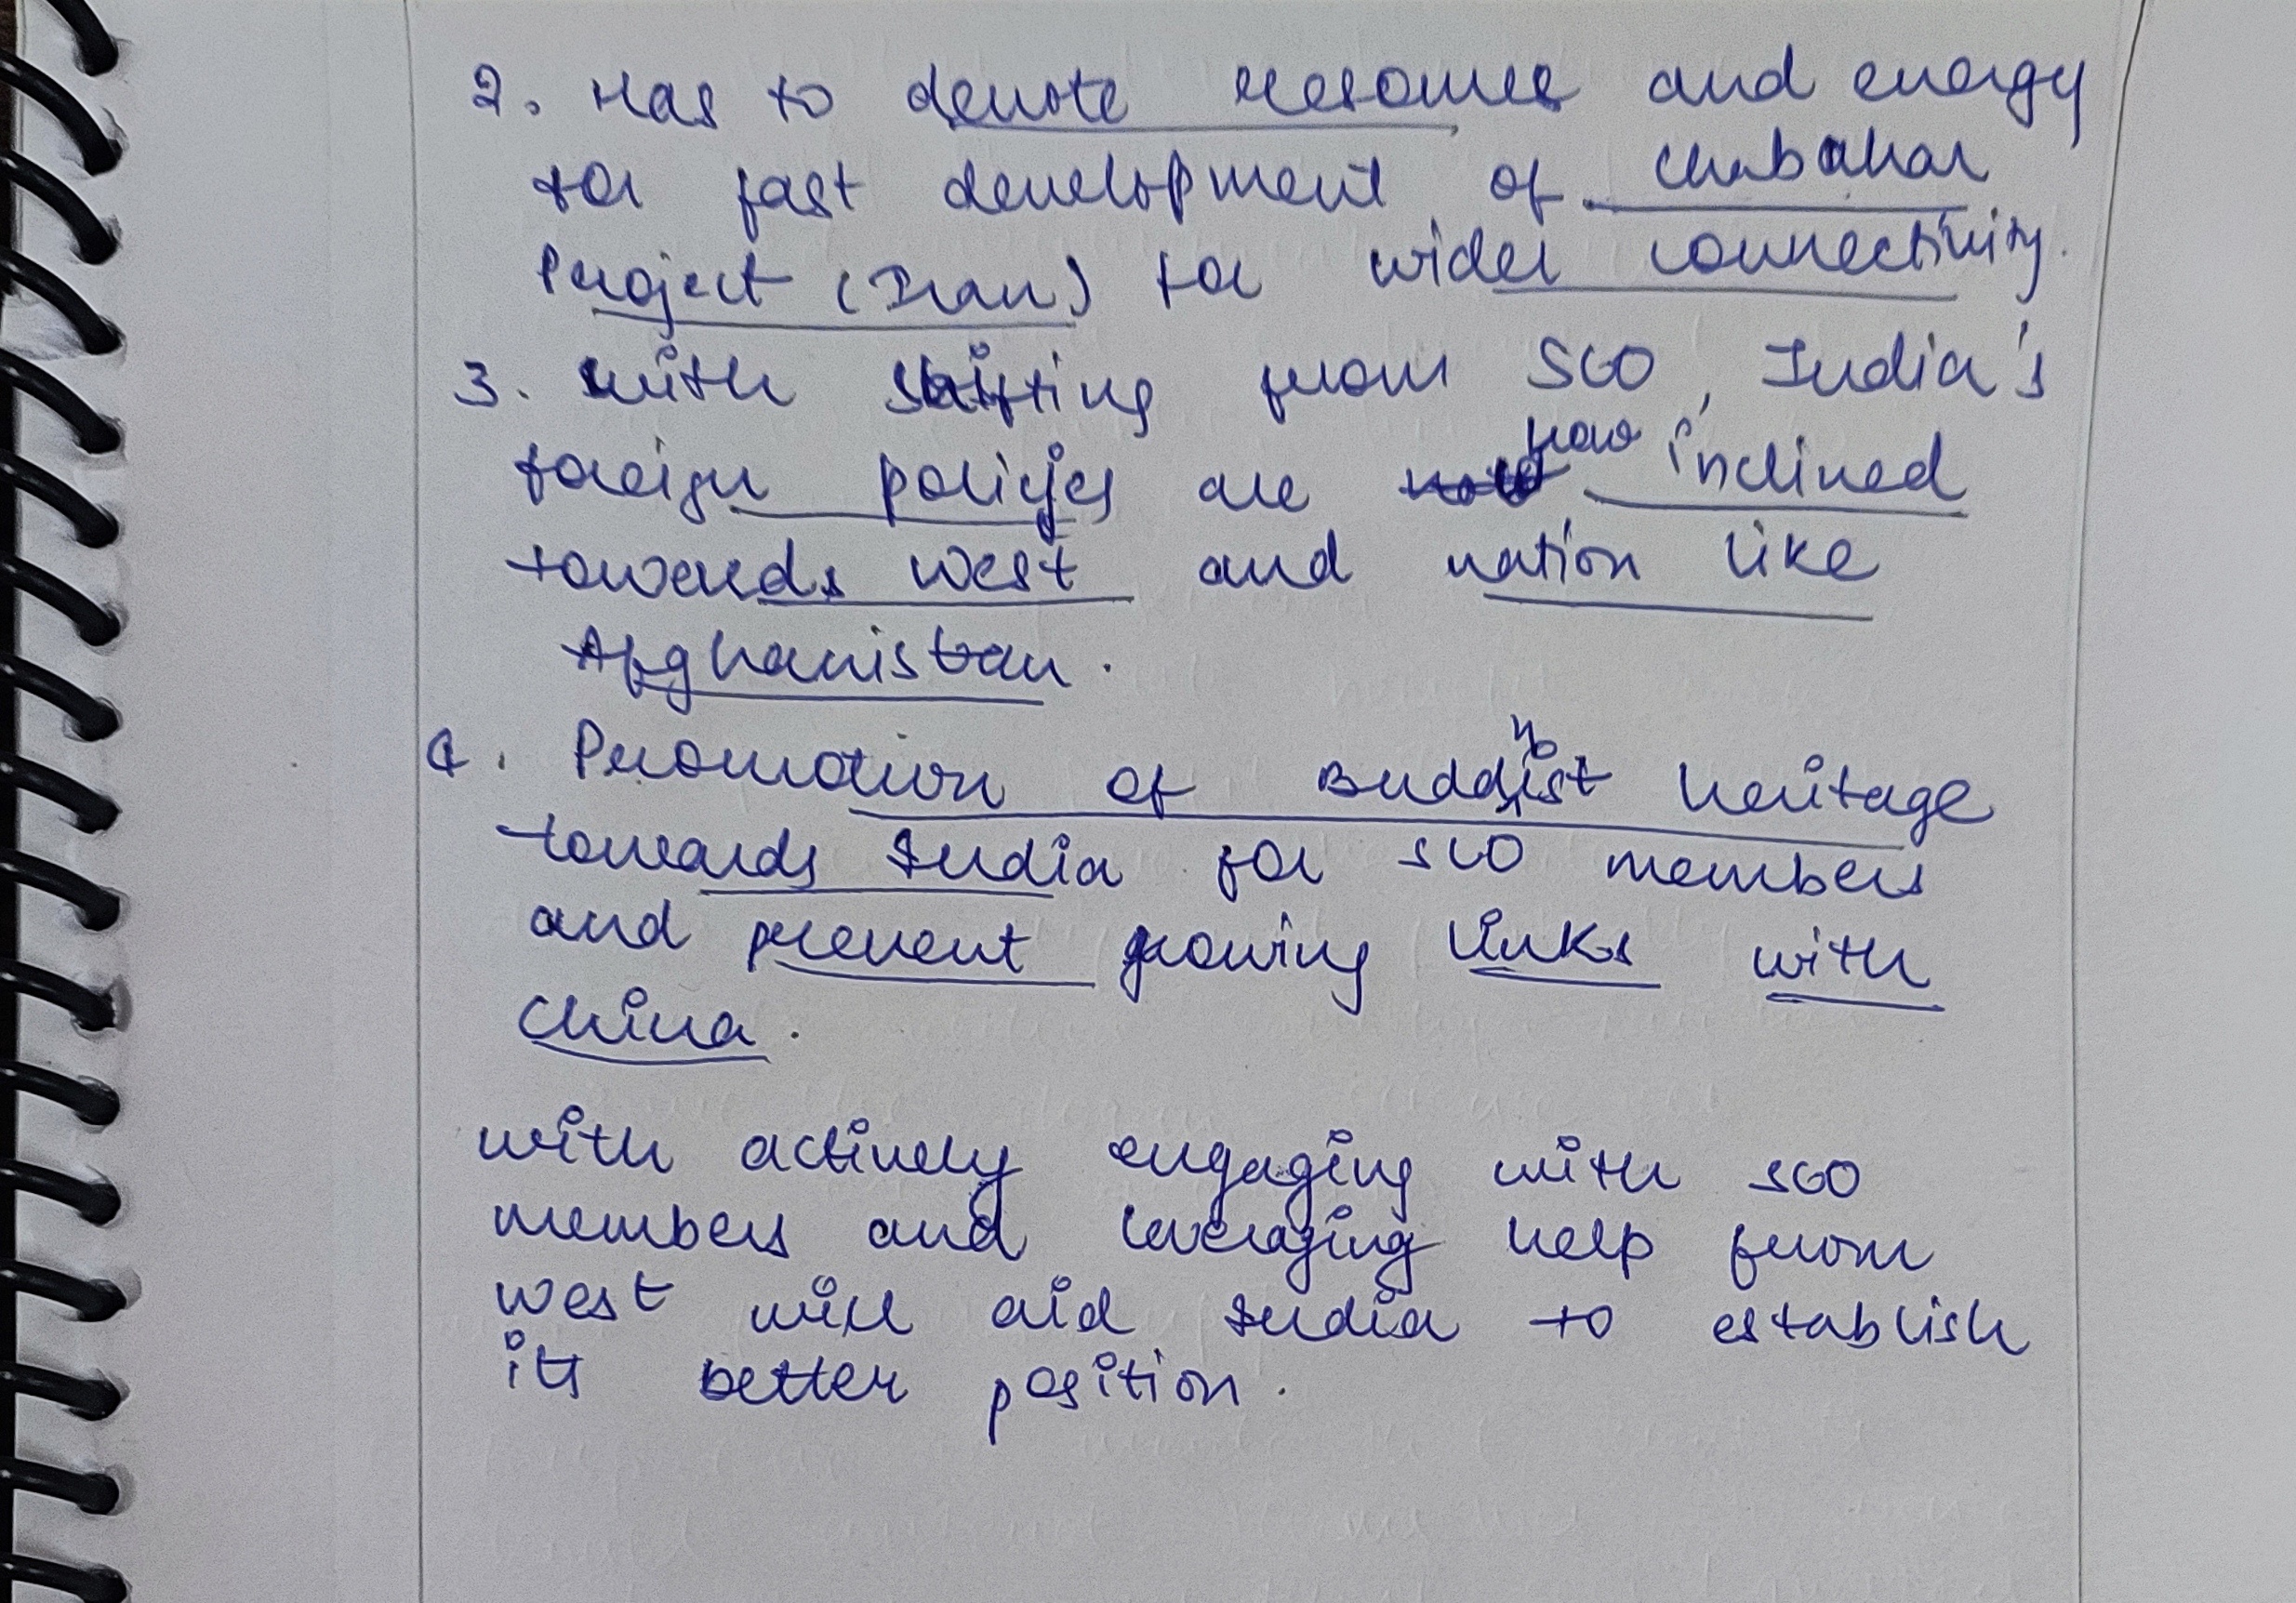 2. Has to devote resources and energy
for fast development of Chabahar
Project (Iran) for wider connectivity.
3. with shifting from SCO, India's
foreign policies are now inclined
towards west and nation like
Afghanistan.
4. Promotion of Buddhist heritage
towards India for SCO members
and prevent growing links with
China.
with actively engaging with SCO
members and leveraging help from
west will aid India to establish
its better position.